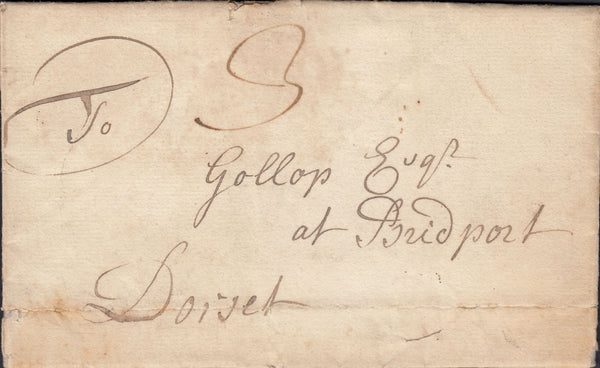 To 3
Gollop Esqr.
at Bridport
Dorset